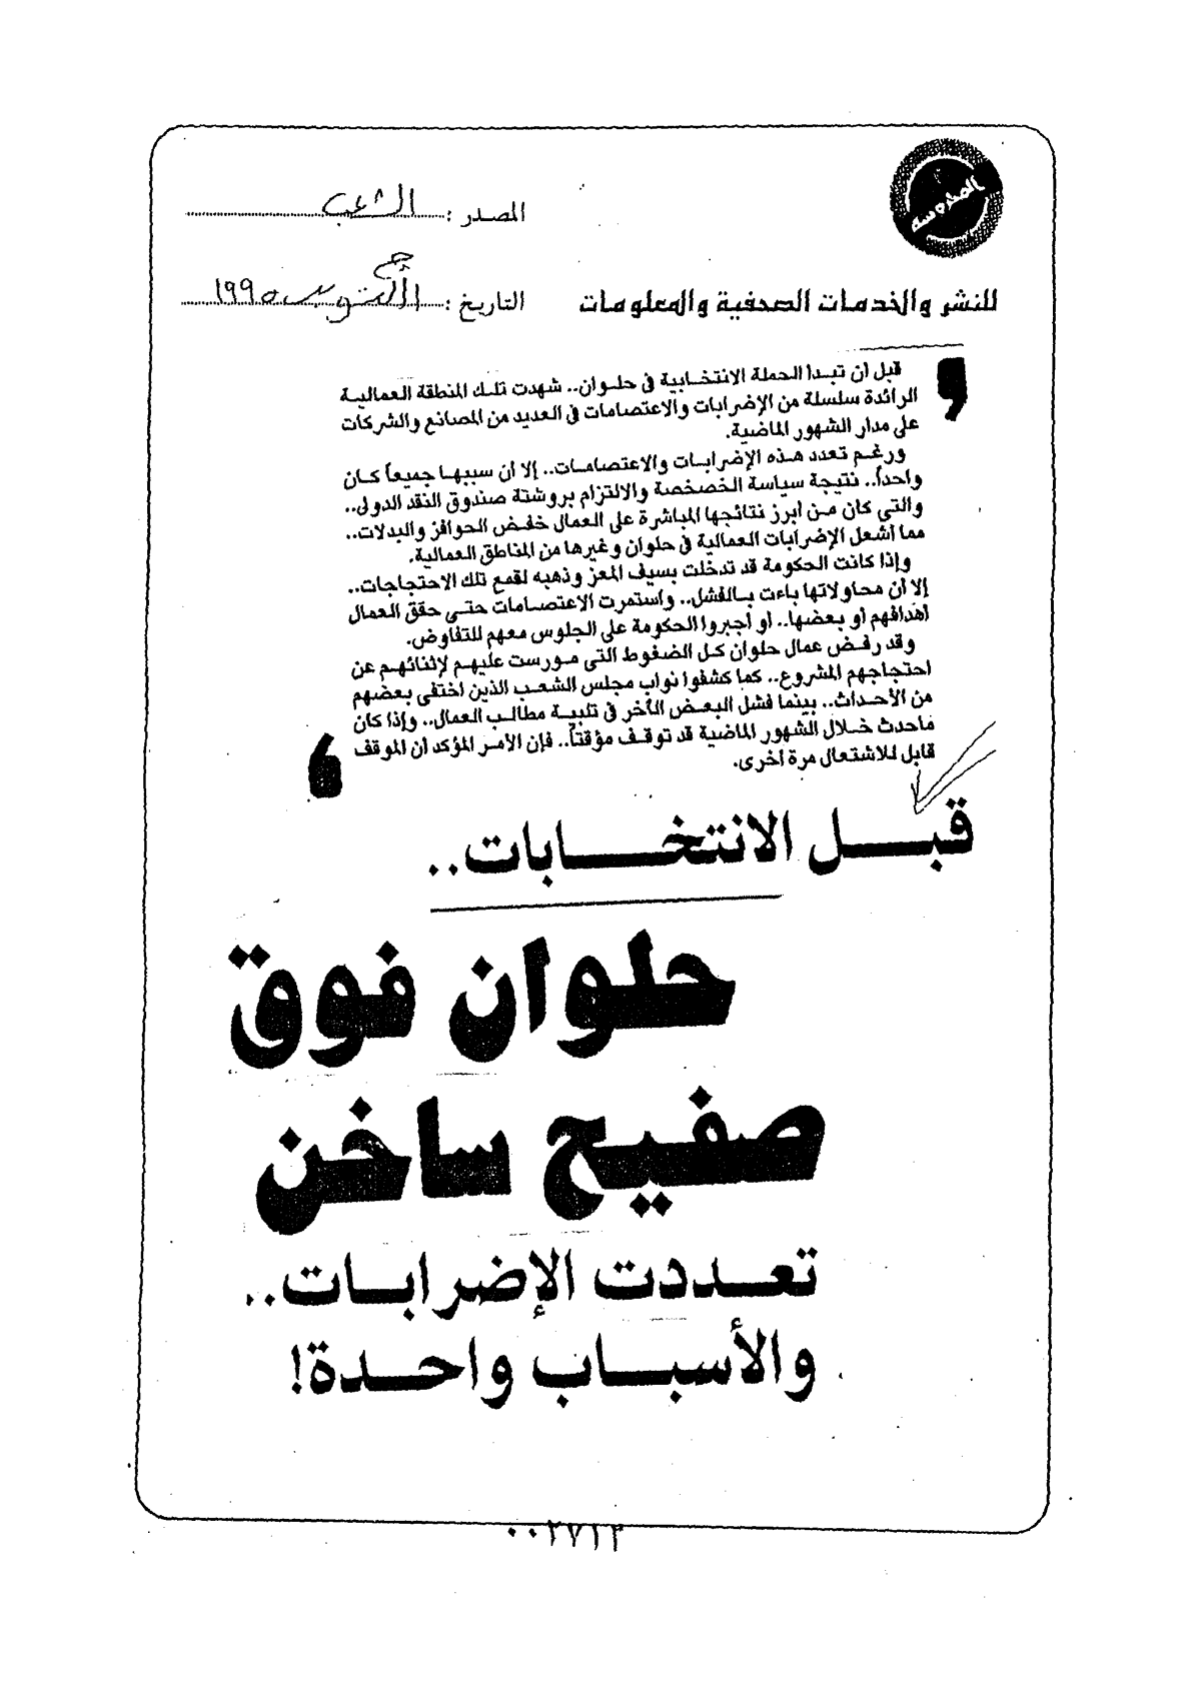 المدروسة
المصدر : الشعب
التاريخ : أكتوبر ١٩٩٥
للنشر والخدمات الصحفية والمعلومات
قبل أن تبدأ الحملة الانتخابية فى حلوان.. شهدت تلك المنطقة العمالية
الرائدة سلسلة من الإضرابات والاعتصامات فى العديد من المصانع والشركات
على مدار الشهور الماضية.
ورغم تعدد هذه الإضرابات والاعتصامات.. إلا أن سببها جميعاً كان
واحداً.. نتيجة سياسة الخصخصة والالتزام بروشتة صندوق النقد الدولى..
والتي كان من أبرز نتائجها المباشرة على العمال خفض الحوافز والبدلات..
مما أشعل الإضرابات العمالية فى حلوان وغيرها من المناطق العمالية.
وإذا كانت الحكومة قد تدخلت بسيف المعز وذهبه لقمع تلك الاحتجاجات..
إلا أن محاولاتها باءت بالفشل.. واستمرت الاعتصامات حتى حقق العمال
أهدافهم أو بعضها.. أو أجبروا الحكومة على الجلوس معهم للتفاوض.
وقد رفض عمال حلوان كل الضغوط التى مورست عليهم لإثنائهم عن
احتجاجهم المشروع.. كما كشفوا نواب مجلس الشعب الذين اختفى بعضهم
من الأحداث.. بينما فشل البعض الآخر فى تلبية مطالب العمال.. وإذا كان
ماحدث خلال الشهور الماضية قد توقف مؤقتاً.. فإن الأمر المؤكد أن الموقف
قابل للاشتعال مرة أخرى.
قبل الانتخابات..
حلوان فوق
صفيح ساخن
تعددت الإضرابات..
والأسباب واحدة!